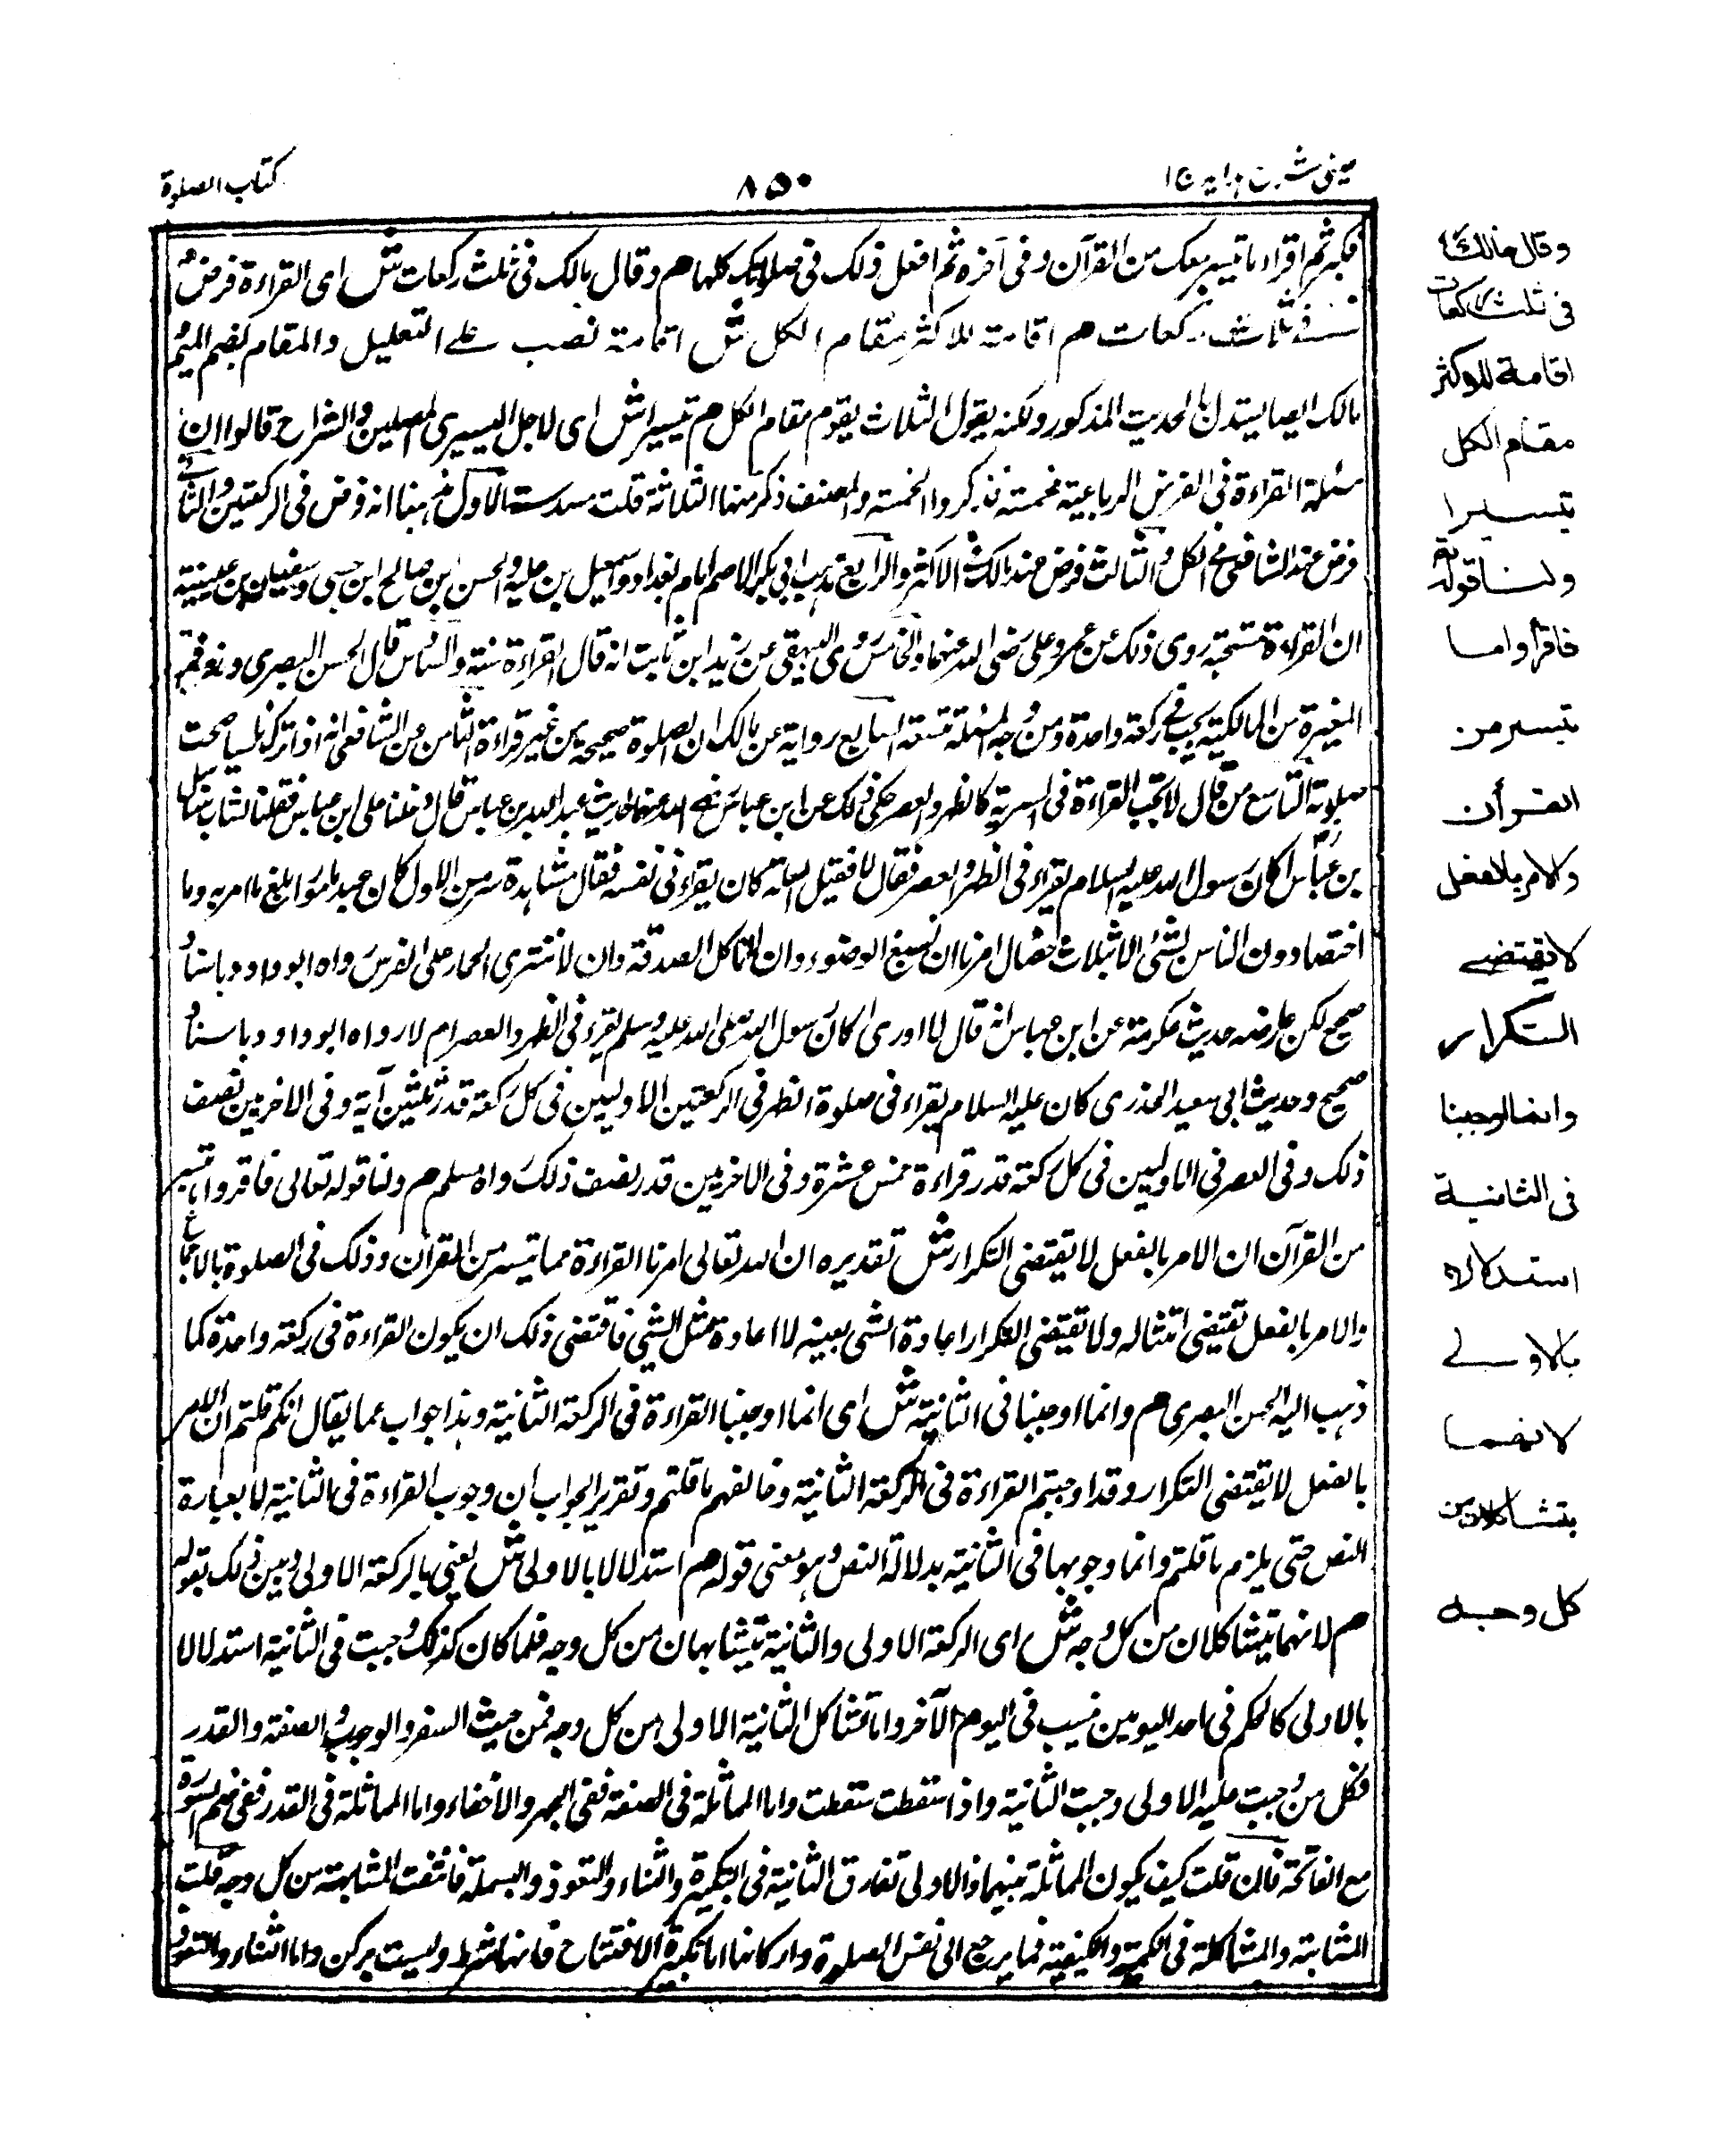 عینی شرح ہدایہ ج ١
٨٥٠
کتاب الصلوة
فکبر ثم اقراء ما تیسر معک من القرآن وفی آخرہ ثم افعل ذلک فی صلاتک کلہا هم وقال مالک فی ثلث رکعات ش ای القراءة فرض
فی ثلاث رکعات هم اقامة للاکثر مقام الکل ش اقامة نصب علے التعلیل والمقام بضم المیم
مالک ایضا یستدل بالحدیث المذکور ولکنہ یقول الثلاث یقوم مقام الکل هم تیسیرا ش ای لاجل الیسیر علی المصلین والشراح قالوا ان
مسئلة القراءة فی الفرض الرباعیة مخمسة فذکروا الخمسة والمصنف ذکر منہا الثلاثة قلت مسدسة الاول مذہبنا انہ فرض فی الرکعتین والثانے
فرض عند الشافعی فی الکل والثالث فرض عند مالک فی الاکثر والرابع مذہب ابی بکر الاصم امام بغداد واسمعیل بن علیہ والحسن ابن صالح ابن حیی وسفیان بن عیینة
ان القراءة مستحبة روی ذلک عن عمر وعلی رضی اللہ عنہما والخامس روی البیہقی عن زید ابن ثابت انہ قال القراءة سنة والسادس قال الحسن البصری وزفر
المغیرة من المالکیة یجب فی رکعة واحدة ومن وجہ المسئلة متسعة السابع روایة عن مالک ان الصلوة صحیحة من غیر قراءة الثامن عن الشافعی انہ اذا ترک ناسیا صحت
صلوتہ التاسع من قال لا تجب القراءة فی السریة کالظہر والعصر حکی ذلک عن ابن عباس رضی اللہ عنہما لحدیث عبد اللہ بن عباس قال دخلنا علی ابن عباس فقلنا لشاب سل
بن عباس اکان رسول اللہ علیہ السلام یقراء فی الظہر والعصر فقال لا فقیل لعلہ کان یقراء فی نفسہ فقال مشاہدة شر من الاول کان عبدا مامورا بلغ ما امر بہ وما
اختصنا دون الناس بشئ الا بثلاث خصال امرنا ان نسبغ الوضوء وان لا ناکل الصدقة وان لا ننتری الحمار علی الفرس رواہ ابو داود باسناد
صحیح لکن عارضہ حدیث عکرمة عن ابن عباس انہ قال لا ادری اکان رسول اللہ صلی اللہ علیہ وسلم یقرء فی الظہر والعصر ام لا رواہ ابو داود باسناد
صحیح وحدیث ابی سعید الخدری کان علیہ السلام یقراء فی صلوة الظہر فی الرکعتین الاولیین فی کل رکعة قدر ثلثین آیة وفی الاخریین نصف
ذلک وفی العصر فی الاولیین فی کل رکعة قدر قراءة خمس عشرة وفی الاخریین قدر نصف ذلک رواہ مسلم هم ولنا قولہ تعالی فاقروا ما تیسر
من القرآن ان الامر بالفعل لا یقتضی التکرار ش تقدیرہ ان اللہ تعالی امرنا القراءة مما تیسر من القرآن وذلک فی الصلوة بالاجماع
والامر بالفعل تقتضی امتثالہ ولا تقتضی التکرار اعادة الشی بعینہ لا اعادة مثل الشی فاقتضی ذلک ان یکون القراءة فی رکعة واحدة کما
ذہب الیہ الحسن البصری هم وانما اوجبنا فی الثانیة ش ای انما اوجبنا القراءة فی الرکعة الثانیة وہذا جواب عما یقال انکم قلتم ان الامر
بالفعل لا یقتضی التکرار وقد اوجبتم القراءة فی الرکعة الثانیة وخالفہم ما قلتم وتقریر الجواب ان وجوب القراءة فی الثانیة لا بعبارة
النص حتی یلزم ما قلتم وانما وجوبہا فی الثانیة بدلالة النص وہو معنی قولہ هم استدلالا بالاولی ش یعنی بالرکعة الاولی وبین ذلک بقولہ
هم لانہما یتشاکلان من کل وجہ ش ای الرکعة الاولی والثانیة یتشابہان من کل وجہ فلما کان کذلک وجبت فی الثانیة استدلالا
بالاولی کالحکم فی احد الیومین یسیب فی الیوم الآخر واما تشاکل الثانیة الاولی من کل وجہ فمن حیث السفر والوجوب والصفة والقدر
فکل من وجبت علیہ الاولی وجبت الثانیة واذا سقطت سقطت واما المماثلة فی الصفة ففی الجہر والاخفاء واما المماثلة فی القدر ففی ضم السورة
مع الفاتحة فان قلت کیف یکون المماثلة بینہما والاولی تفارق الثانیة فی التکبیرة والثناء والتعوذ والبسملة فانتفت المشابہة من کل وجہ قلت
المشابہة والمشاکلة فی الکمیة والکیفیة فیما یرجع الی نفس الصلوة وارکانہا اما تکبیرة الافتتاح فانہا شرط ولیست برکن واما الثناء والتعوذ
وقال مالك
فی ثلث رکعات
اقامة للاکثر
مقام الکل
تیسیرا
ولنا قوله تع
فاقرأوا ما
تیسر من
القرأن
والامر بالفعل
لا یقتضے
التکرار
وانما اوجبنا
فی الثانیة
استدلالا
بالاولے
لانهما
یتشاکلان من
کل وجه